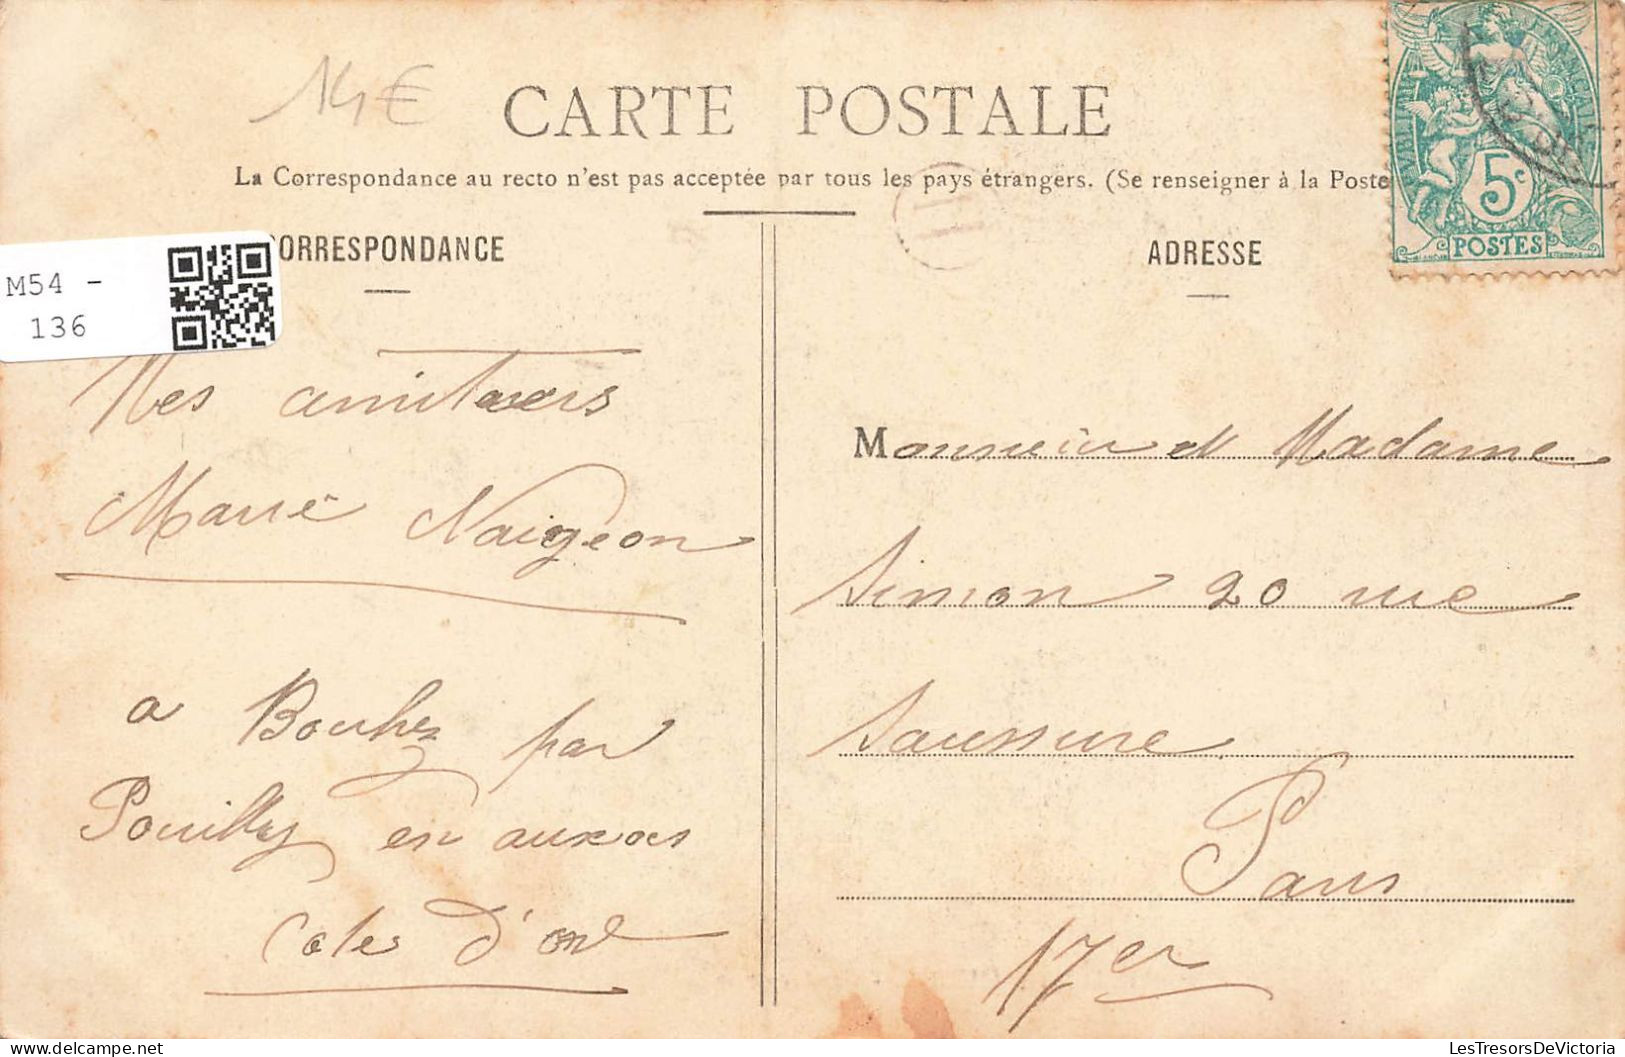 14€
CARTE POSTALE
La Correspondance au recto n'est pas acceptée par tous les pays étrangers. (Se renseigner à la Poste
ORRESPONDANCE
M54 -
136
Mes
Marie Naigeon
a Bouhey par
Pouilly en auxois
Cotes d'or
ADRESSE
Monsieur et Madame
Simon 20 rue
Saussure
Paris
17er
5c
POSTES
LesTresorsDeVictoria